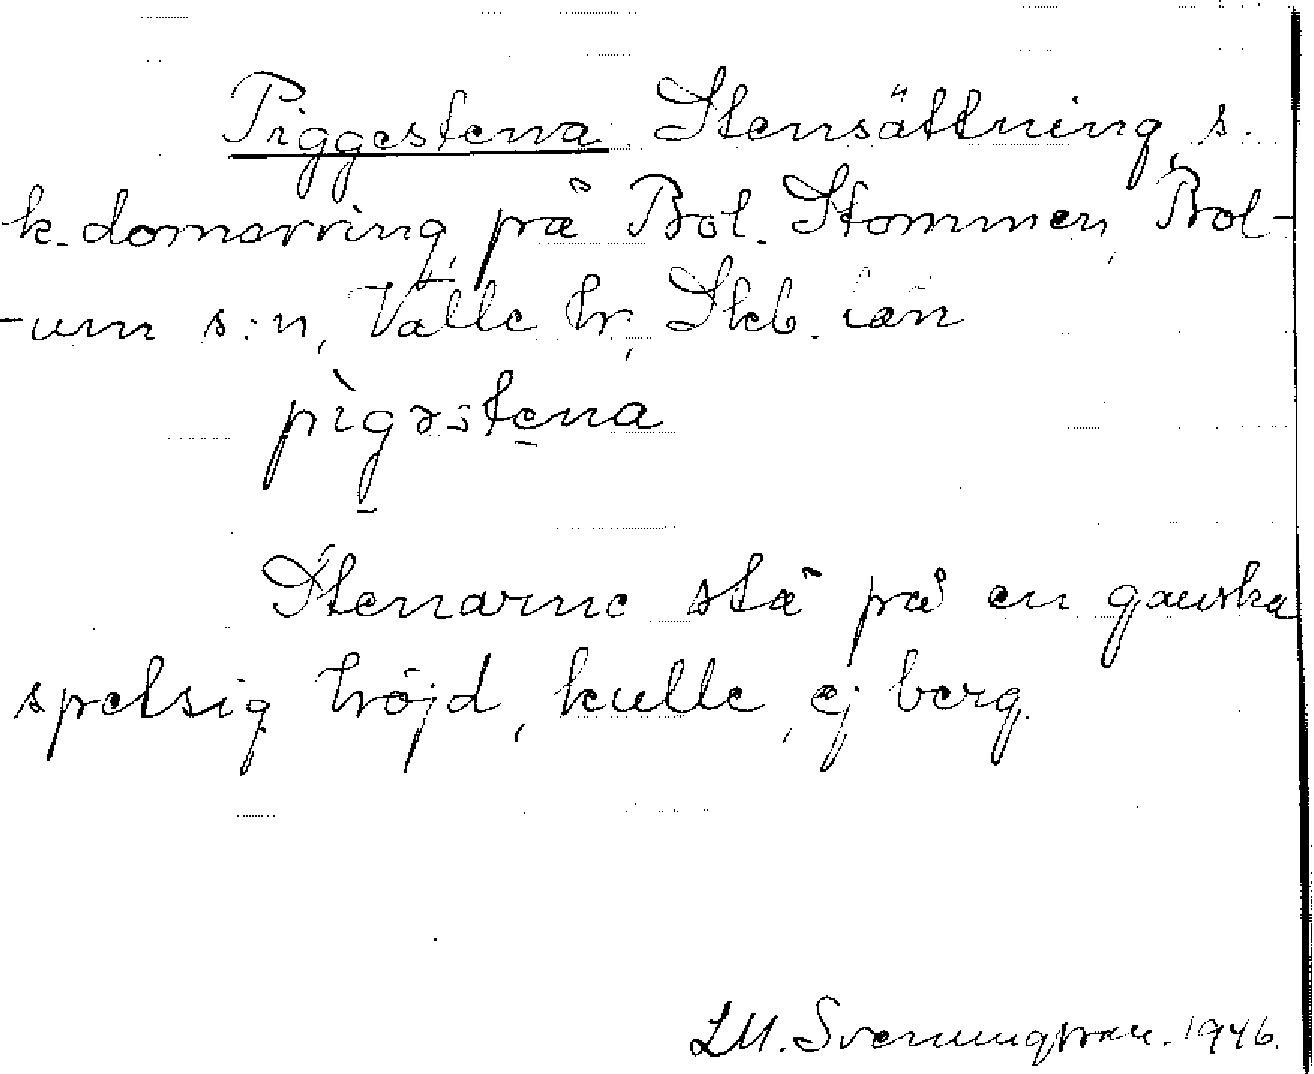 Piggestena. Stensättning s.
k. domarring på Bol. Stommen, Bol-
-um s:n, Valle hr, Skb. län
pìgəstena
Stenarne stå på en ganska
spetsig höjd, kulle, ej berg.
LM. Svenungsson. 1946.